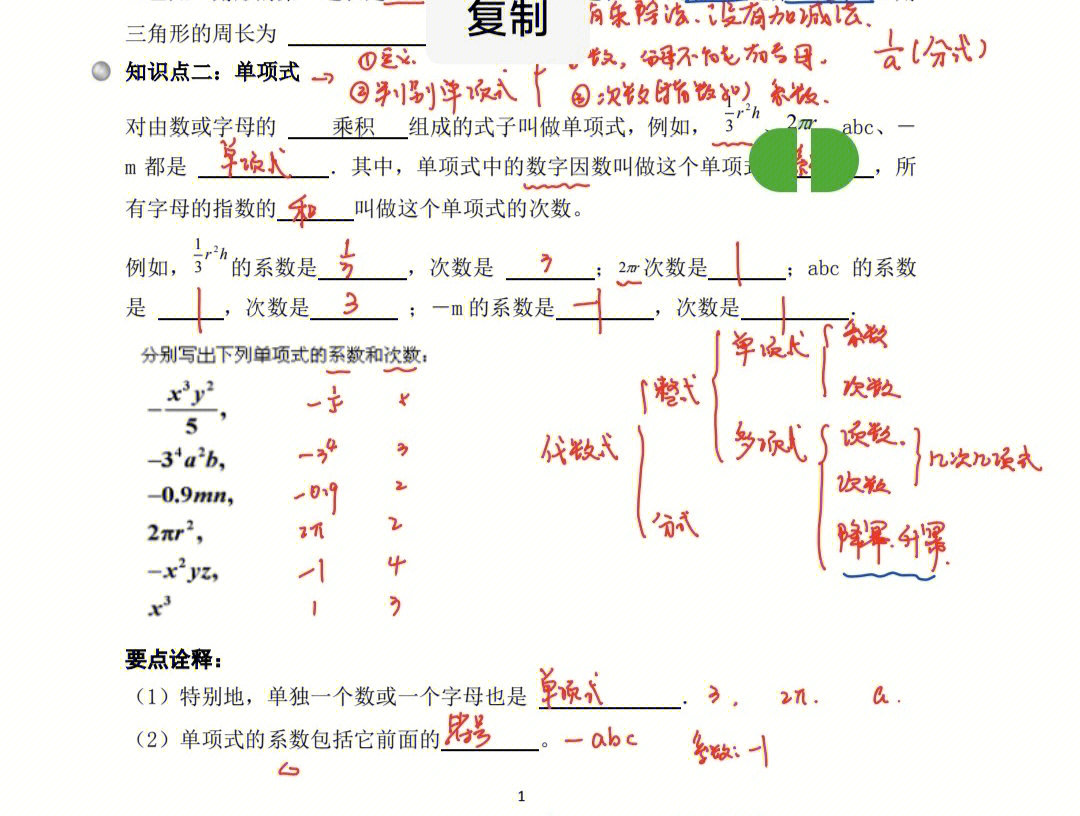 复制
有乘除法.没有加减法.
三角形的周长为
①定义. 数,分母不能含字母. 1/a(分式)
知识点二:单项式 → ②判别单项式 ③次数(指数和) 系数.
对由数或字母的 乘积 组成的式子叫做单项式,例如, 1/3 r²h、2πr、abc、-
m 都是 单项式 .其中,单项式中的数字因数叫做这个单项式 系 ,所
有字母的指数的 和 叫做这个单项式的次数。
例如, 1/3 r²h 的系数是 1/3 ,次数是 3 ;2πr 次数是 1 ;abc 的系数
是 1 ,次数是 3 ;-m 的系数是 -1 ,次数是 1 .
分别写出下列单项式的系数和次数:
-x³y²/5, -1/5 5
-3⁴a²b, -3⁴ 3
-0.9mn, -0.9 2
2πr², 2π 2
-x²yz, -1 4
x³ 1 3
代数式
整式
分式
单项式
系数
次数
多项式
项数.
次数
几次几项式
降幂.升幂.
要点诠释:
(1)特别地,单独一个数或一个字母也是 单项式 . 3, 2π. a.
(2)单项式的系数包括它前面的 符号 。 -abc 系数:-1
1